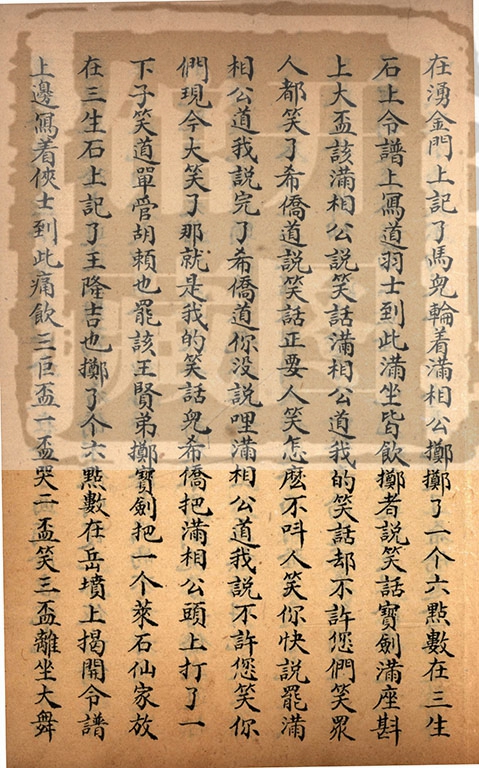 在湧金門上記了馬𠒇輪着滿相公擲擲了一个六點數在三生
石上令譜上寫道羽士到此滿坐皆飲擲者說笑話寳劍滿座斟
上大盃該滿相公說笑話滿相公道我的笑話却不許您們笑眾
人都笑了希僑道說笑話正要人笑怎麽不呌人笑你快說罷滿
相公道我說完了希僑道你没說哩滿相公道我說不許您笑你
們現今大笑了那就是我的笑話𠒇希僑把滿相公頭上打了一
下子笑道單管胡頼也罷該王賢弟擲寳劍把一个萊石仙家放
在三生石上記了王隆吉也擲了个六點數在岳墳上揭開令譜
上邊寫着俠士到此痛飲三巨盃一盃哭二盃笑三盃離坐大舞